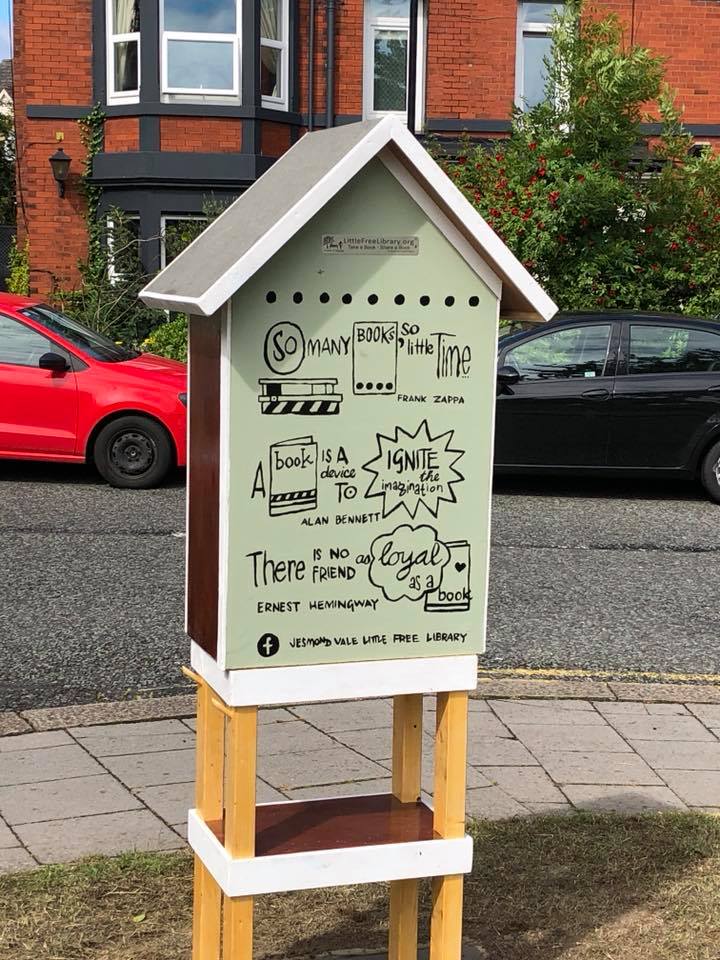 LittleFreeLibrary.org
Take a Book • Share a Book
SO MANY BOOKS, SO little Time
FRANK ZAPPA
A book IS A device TO IGNITE the imagination
ALAN BENNETT
There IS NO FRIEND as loyal as a book
ERNEST HEMINGWAY
f JESMOND VALE LITTLE FREE LIBRARY